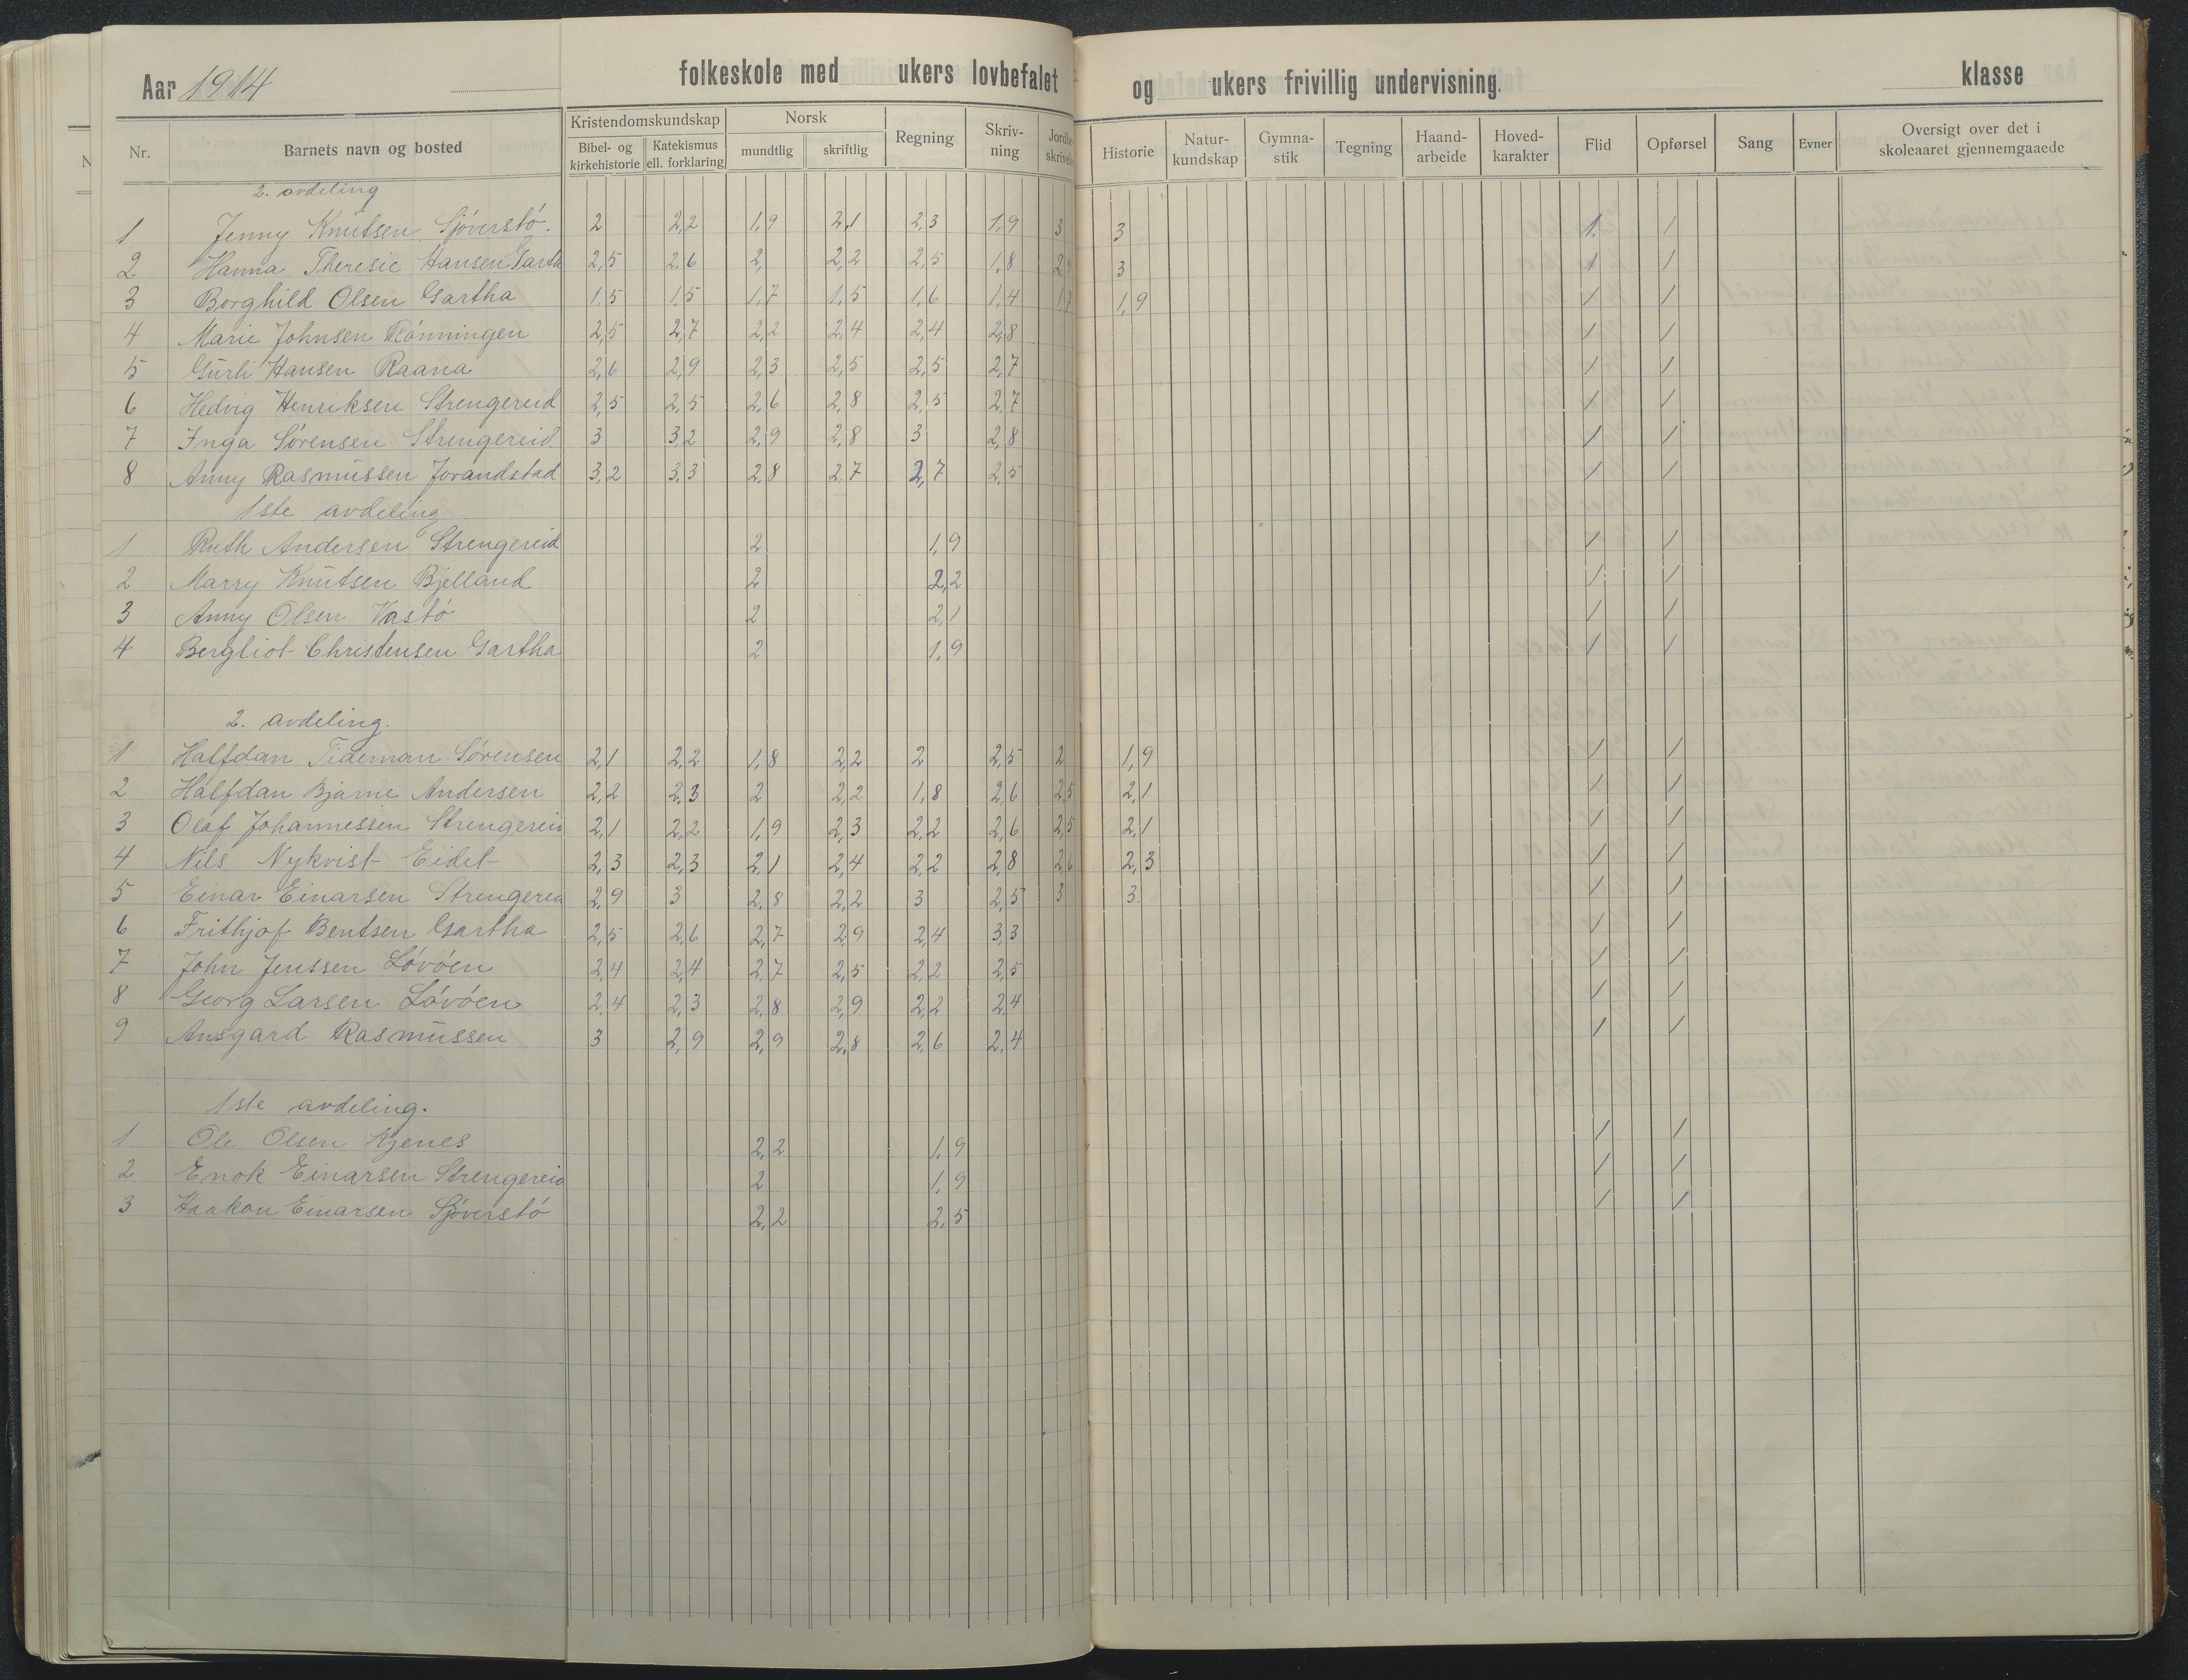 Aar 1914 folkeskole med ukers lovbefalet og ukers frivillig undervisning. klasse
Nr. Barnets navn og bosted Kristendomskundskap Bibel- og kirkehistorie Katekismus ell. forklaring Norsk mundtlig skriftlig Regning Skriv-ning Historie Natur-kundskap Gymna-stik Tegning Haand-arbeide Hoved-karakter Flid Opførsel Sang Evner Oversigt over det i skoleaaret gjennemgaaede
2. avdeling
1 Jenny Knutsen Sjöverstö. 2 2,2 1,9 2,1 2,3 1,9 3 3 1 1
2 Hanna Theresie Hansen Garth 2,5 2,6 2, 2,2 2,5 1,8 3 1 1
3 Borghild Olsen Gartha 1,5 1,5 1,7 1,5 1,6 1,4 1,7 1,9 1 1
4 Marie Johnsen Rönningen 2,5 2,7 2,2 2,4 2,4 2,8 1 1
5 Gurli Hansen Raana 2,6 2,9 2,3 2,5 2,5 2,7 1 1
6 Hedvig Henriksen Strengereid 2,5 2,5 2,6 2,8 2,5 2,7 1 1
7 Inga Sörensen Strengereid 3 3,2 2,9 2,8 3 2,8 1 1
8 Anny Rasmussen Jorandstad 3,2 3,3 2,8 2,7 2,7 2,5 1 1
1ste avdeling
1 Ruth Andersen Strengereid 2 1,9 1 1
2 Marry Knutsen Bjelland 2 2,2 1 1
3 Anny Olsen Vastö 2 2,1 1 1
4 Bergliot Christensen Gartha 2 1,9 1 1
2. avdeling.
1 Halfdan Tideman Sörensen 2,1 2,2 1,8 2,2 2 2,5 2 1,9 1 1
2 Halfdan Bjarne Andersen 2,2 2,3 2 2,2 1,8 2,6 2,5 2,1 1 1
3 Olaf Johannessen Strengereid 2,1 2,2 1,9 2,3 2,2 2,6 2,5 2,1 1 1
4 Nils Nykvist Eidet 2,3 2,3 2,1 2,4 2,2 2,8 2,6 2,3 1 1
5 Einar Einarsen Strengerei 2,9 3 2,8 2,2 3 2,5 3 3. 1 1
6 Frithjof Bentsen Gartha 2,5 2,6 2,7 2,9 2,4 3,3 1 1
7 John Jenssen Lövöen 2,4 2,4 2,7 2,5 2,2 2,5 1 1
8 Georg Larsen Lövöen 2,4 2,3 2,8 2,9 2,2 2,4 1 1
9 Ansgard Rasmussen 3 2,9 2,9 2,8 2,6 2,4 1 1
1ste avdeling.
1 Ole Olsen Kjenes 2,2 1,9 1 1
2 Enok Einarsen Strengereid 2 1,9 1 1
3 Haakon Einarsen Sjöverstö 2,2 2,5 1 1